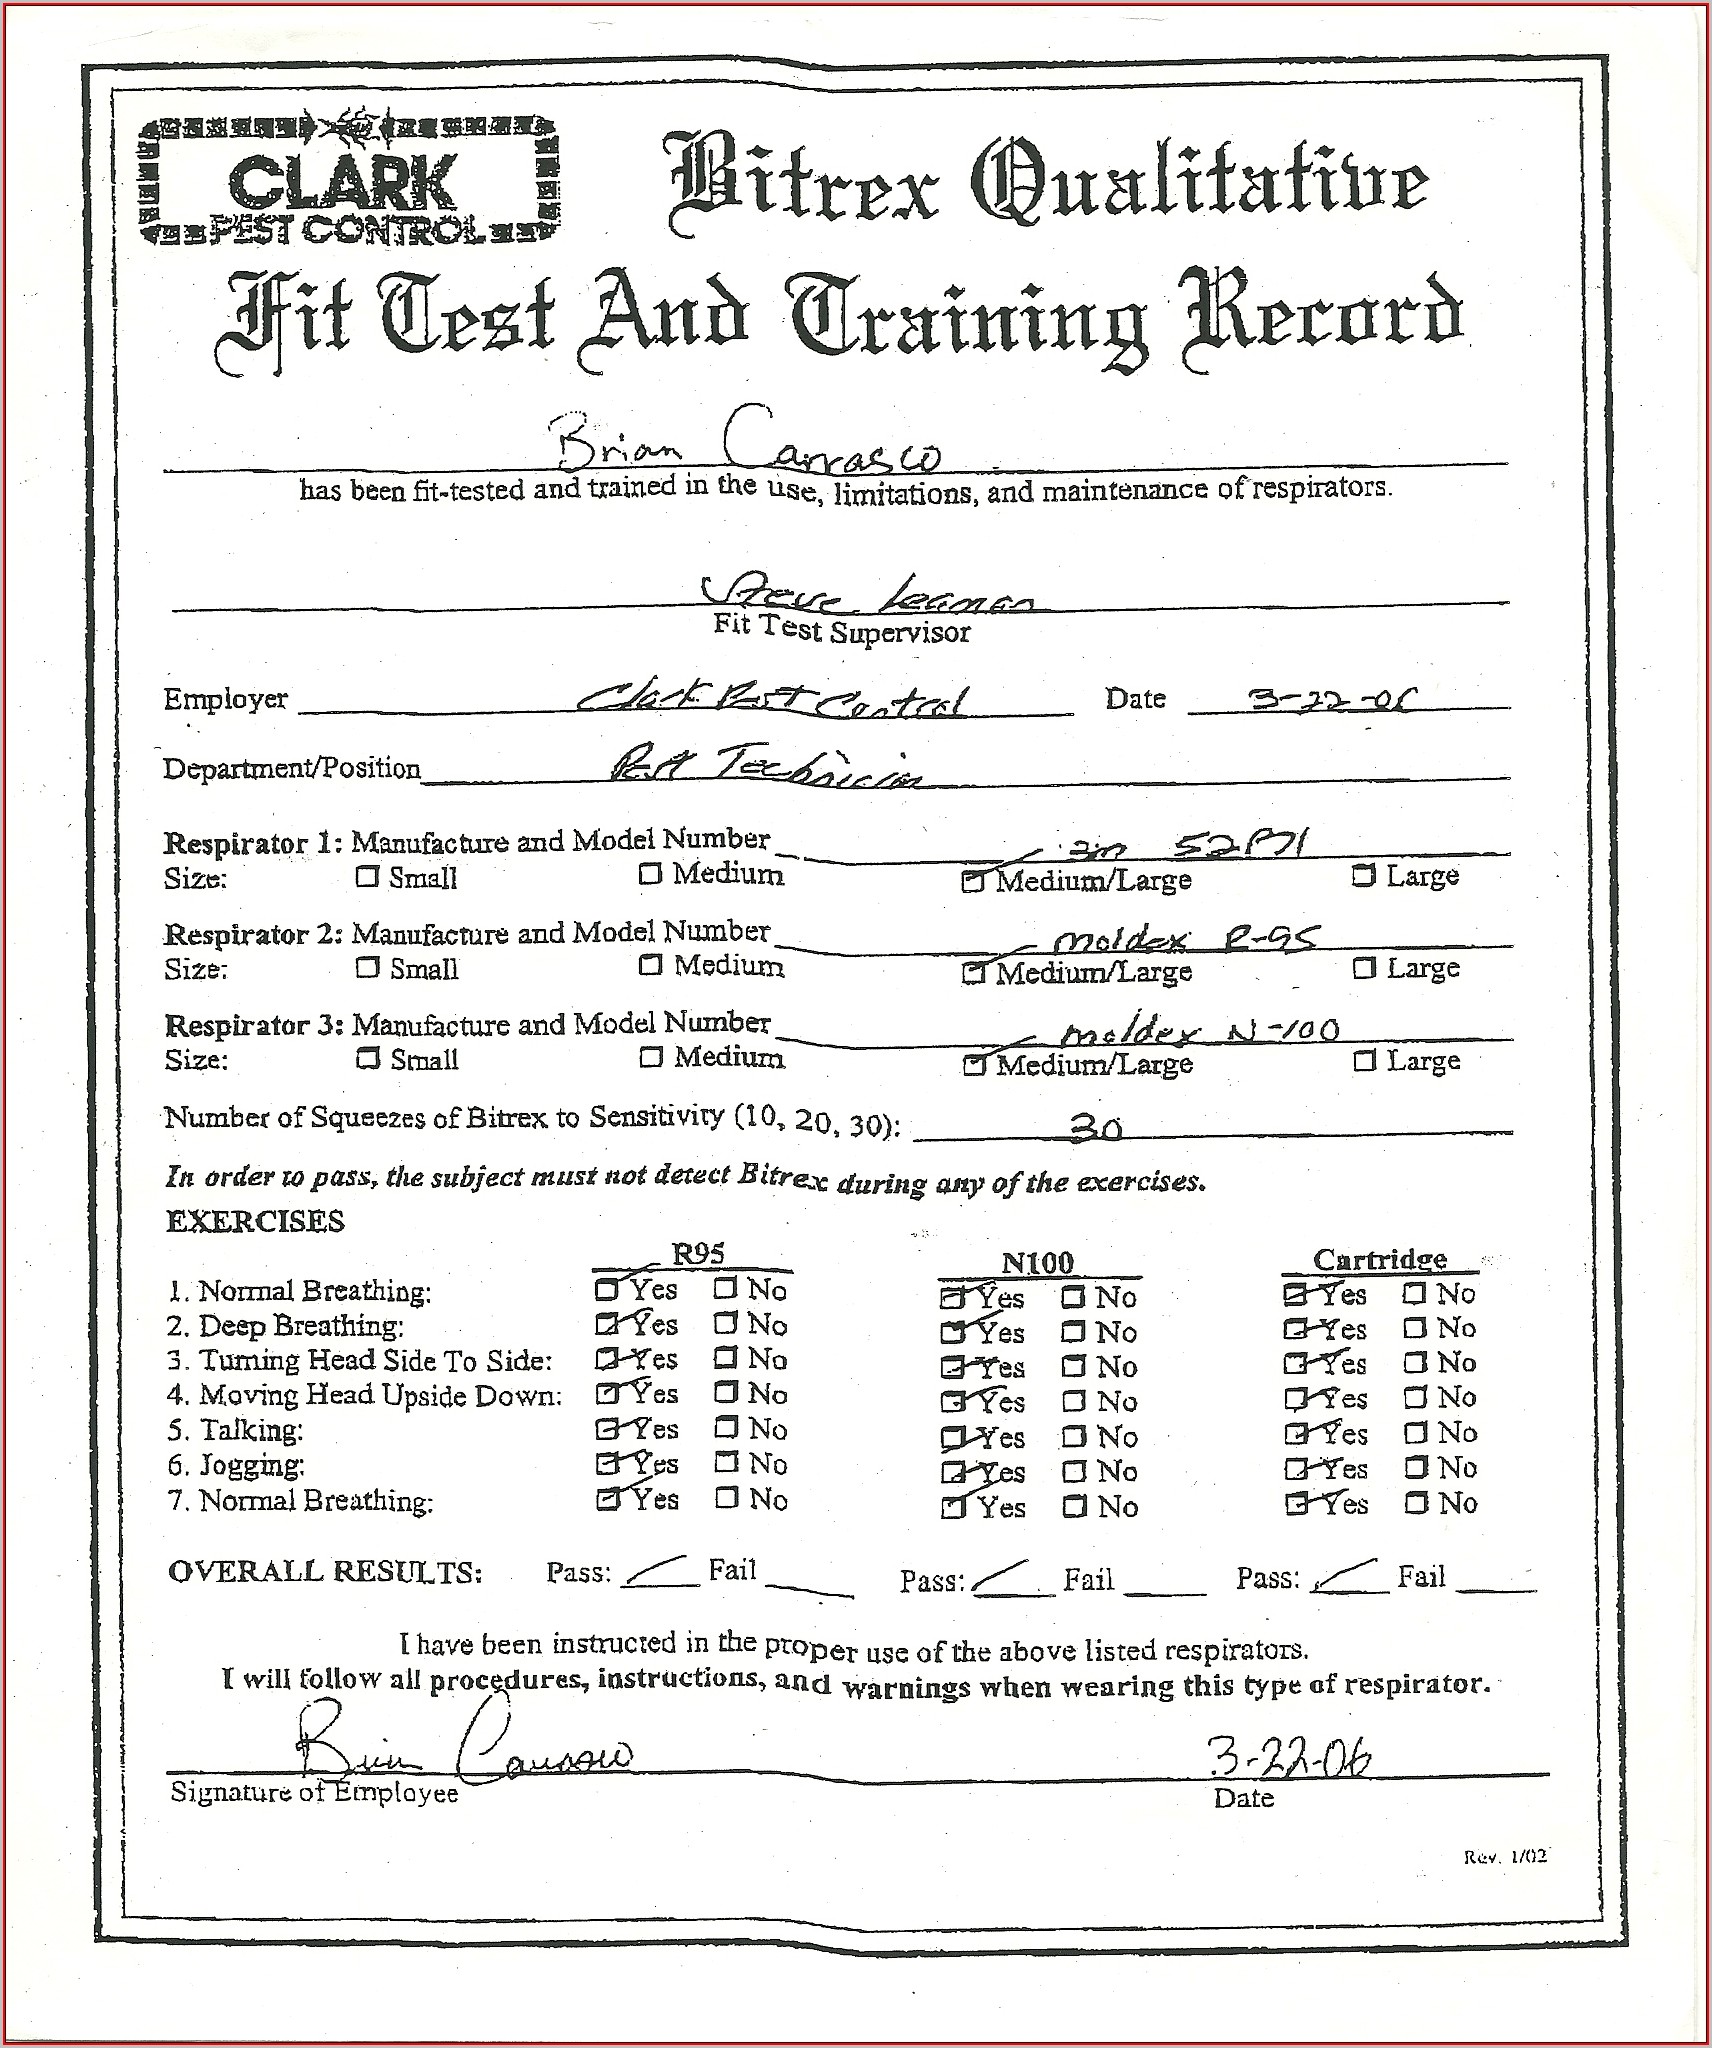 CLARK
PEST CONTROL
Bitrex Qualitative
Fit Test And Training Record
Brian Carrasco
has been fit-tested and trained in the use, limitations, and maintenance of respirators.
Steve Leaman
Fit Test Supervisor
Employer Clark Pest Control Date 3-22-06
Department/Position Pest Technician
Respirator 1: Manufacture and Model Number 3m 52P71
Size: Small Medium Medium/Large Large
Respirator 2: Manufacture and Model Number moldex R-95
Size: Small Medium Medium/Large Large
Respirator 3: Manufacture and Model Number moldex N-100
Size: Small Medium Medium/Large Large
Number of Squeezes of Bitrex to Sensitivity (10, 20, 30): 30
In order to pass, the subject must not detect Bitrex during any of the exercises.
EXERCISES
R95 N100 Cartridge
1. Normal Breathing: Yes No Yes No Yes No
2. Deep Breathing: Yes No Yes No Yes No
3. Turning Head Side To Side: Yes No Yes No Yes No
4. Moving Head Upside Down: Yes No Yes No Yes No
5. Talking: Yes No Yes No Yes No
6. Jogging: Yes No Yes No Yes No
7. Normal Breathing: Yes No Yes No Yes No
OVERALL RESULTS: Pass: Fail Pass: Fail Pass: Fail
I have been instructed in the proper use of the above listed respirators.
I will follow all procedures, instructions, and warnings when wearing this type of respirator.
Brian Carrasco 3-22-06
Signature of Employee Date
Rev. 1/02